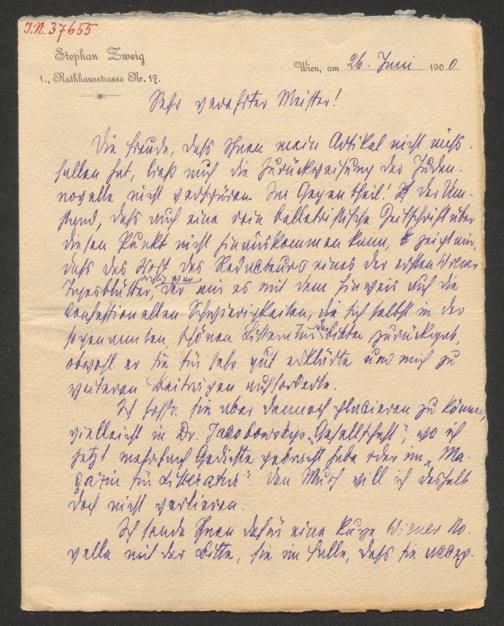 I.N. 37655
Stephan Zweig
1., Rathhausstrasse Nr. 17.
Wien, am 26. Juni 1900
Sehr verehrter Meister!
Die Freude, dass Ihnen mein Artikel nicht miss-
fallen hat, liess mich die Zurückweisung der Juden-
novelle nicht verspüren. Im Gegentheil! der Um-
stand, dass auch eine rein belletristische Zeitschrift über
diesen Punkt nicht hinauskommen kann, zeigt mir,
dass das des Redacteurs eines der ersten Wiener
Tagesblätter, der mir es mit dem Hinweis auf die
confessionellen Schwierigkeiten, die sich selbst in der
sogenannten schönen Litteratur zurückgab,
obwohl er sie für sehr gut erklärte und mich zu
weiteren Beiträgen aufforderte.
Ich hoffe sie aber dennoch placieren zu können,
vielleicht in Dr. Jacobowskys „Gesellschaft", wo ich
jetzt mehrfach Gedichte gebracht habe oder im „Ma-
gazin für Litteratur". Den Muth will ich deshalb
doch nicht verlieren.
Ich sende Ihnen dafür eine kurze Wiener No-
velle mit der Bitte, sie im Falle, dass sie accep-